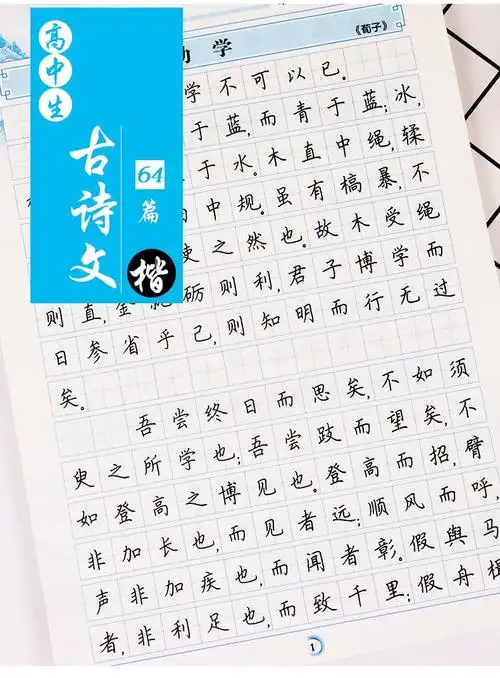 高中生
古诗文
64
篇
楷
学
《荀子》
学不可以已。
于蓝,而青于蓝;冰,
于水。木直中绳,輮
中规。虽有槁暴,不
之然也。故木受绳
则直,金就砺则利,君子博学而
日参省乎己,则知明而行无过
矣。
吾尝终日而思矣,不如须
臾之所学也;吾尝跂而望矣,不
如登高之博见也。登高而招,臂
非加长也,而见者远;顺风而呼,
声非加疾也,而闻者彰。假舆马
者,非利足也,而致千里;假舟楫
1